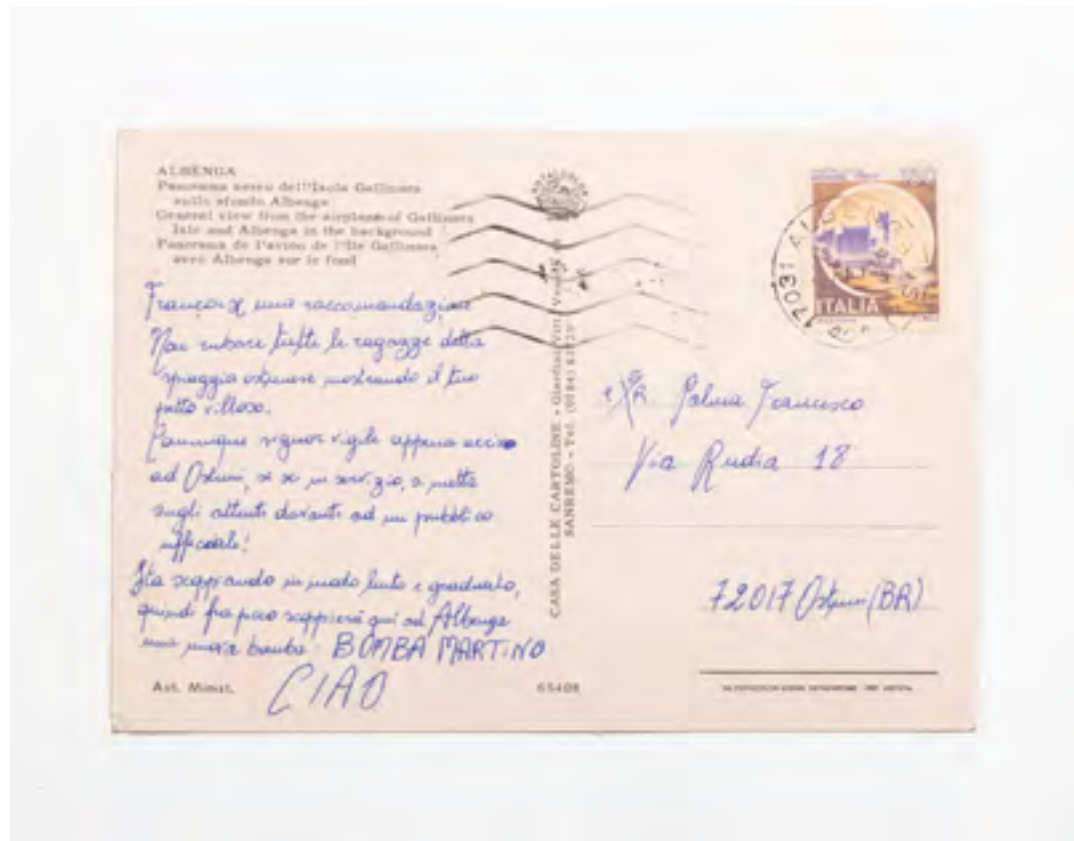 ALBENGA
Panorama aereo dell'Isola Gallinara
sullo sfondo Albenga
General view from the airplane of Gallinara
Isle and Albenga in the background
Panorama de l'avion de l'Ile Gallinara
avec Albenga sur le fond
François, una raccomandazione
Non rubare tutte le ragazze della
spiaggia ostunese mostrando il tuo
petto villoso.
Comunque signor vigile appena
ad Ostuni, se se in servizio, si metta
sugli attenti davanti ad un pubblico
ufficiale!
Sta scoppiando in modo lento e graduato,
quindi fra poco scoppierà qui ad Albenga
una nuova bomba: BOMBA MARTINO
CIAO
Aut. Minist.
65408
CASA DELLE CARTOLINE - Giardini
SANREMO - Tel. (0184)
17031
ITALIA
Palma Francesco
Via Rudia 18
72017 Ostuni (BR)